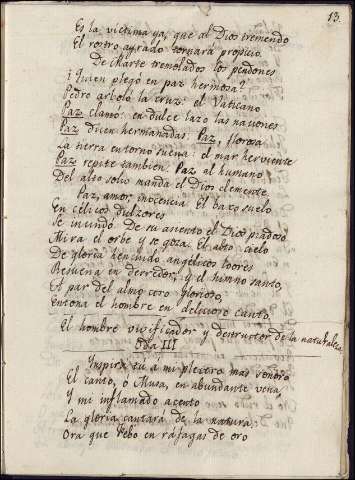 13.
Es la victima ya, que al Dios tremendo
El rostro ayrado tornará propicio.
De Marte tremolados los pendones
¿Quien plegó en paz hermosa?
Pedro arboló la cruz: el Vaticano
Paz clamó: en dulce lazo las naciones
Paz dicen hermanadas. Paz, llorosa
La tierra entorno suena: el mar herviente
Paz repite tambien. Paz al humano
Del alto solio manda el Dios clemente.
Paz, amor, inocencia El baxo suelo
En célicos dulzores
Se inundó. De su asiento el Dios piadoso
Mira el orbe y se goza. El alto cielo
De gloria henchido angélicos loores
Resuena en derredor; y el himno santo,
Al par del almo coro glorioso,
Entona el hombre en delicioso canto.
El hombre vivificador y destructor de la naturaleza
Oda III
Inspira tú á mi plectro mas sonoro
El canto, ó Musa, en abundante vena,
Y mi inflamado acento
La gloria cantará de la natura.
Ora que Febo en ráfagas de oro